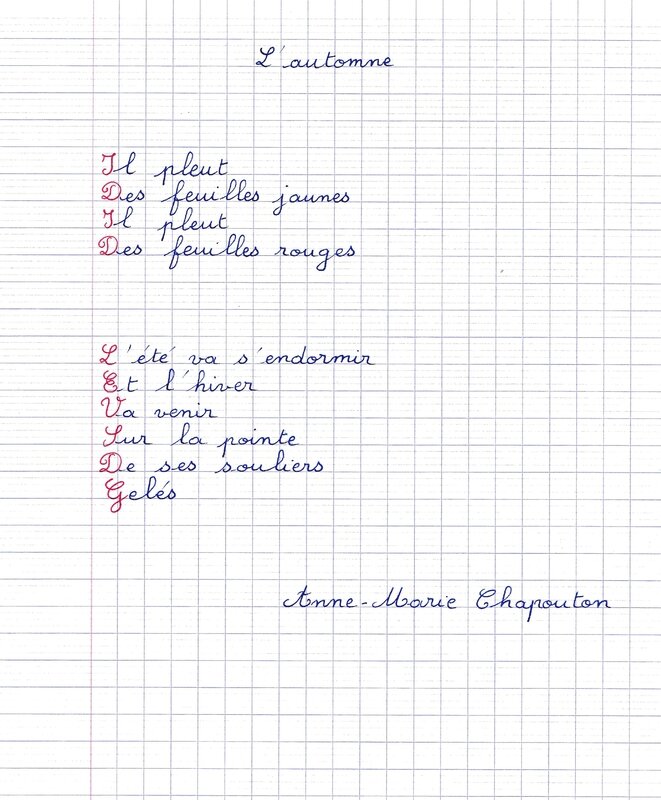 L'automne
Il pleut
Des feuilles jaunes
Il pleut
Des feuilles rouges
L'été va s'endormir
Et l'hiver
Va venir
Sur la pointe
De ses souliers
Gelés
Anne-Marie Chapouton